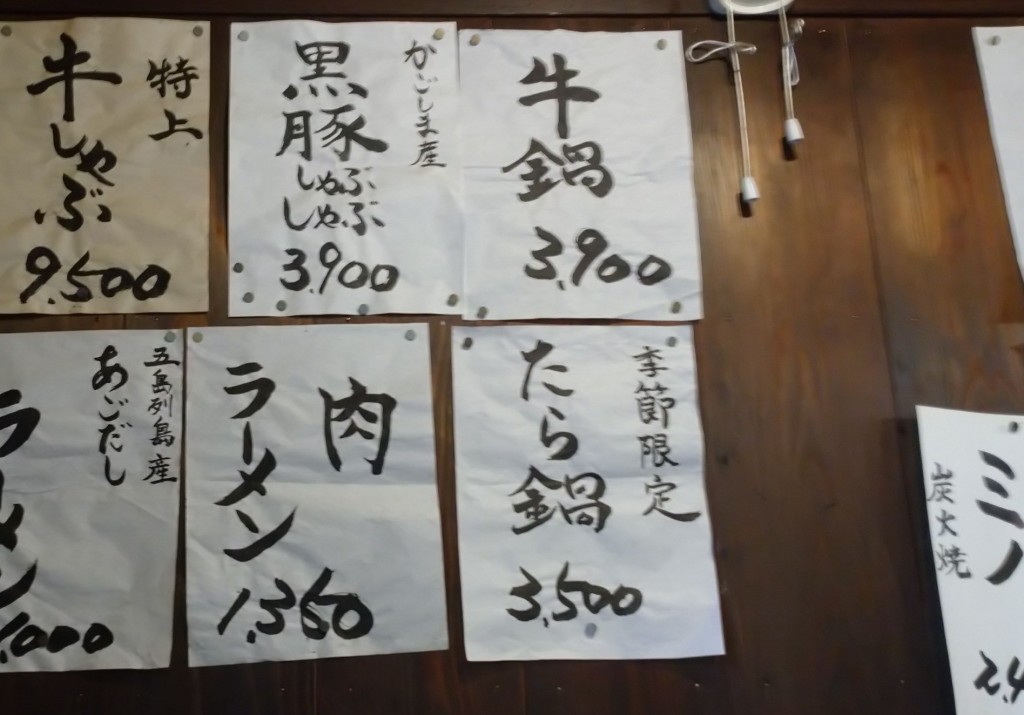 特上
牛しゃぶ
9,500
かごしま産
黒豚
しゃぶ
しゃぶ
3,900
牛鍋
3,900
五島列島産
あごだし
ラーメン
1,000
肉
ラーメン
1,350
季節限定
たら鍋
3,500
ミノ
炭火焼
2,4